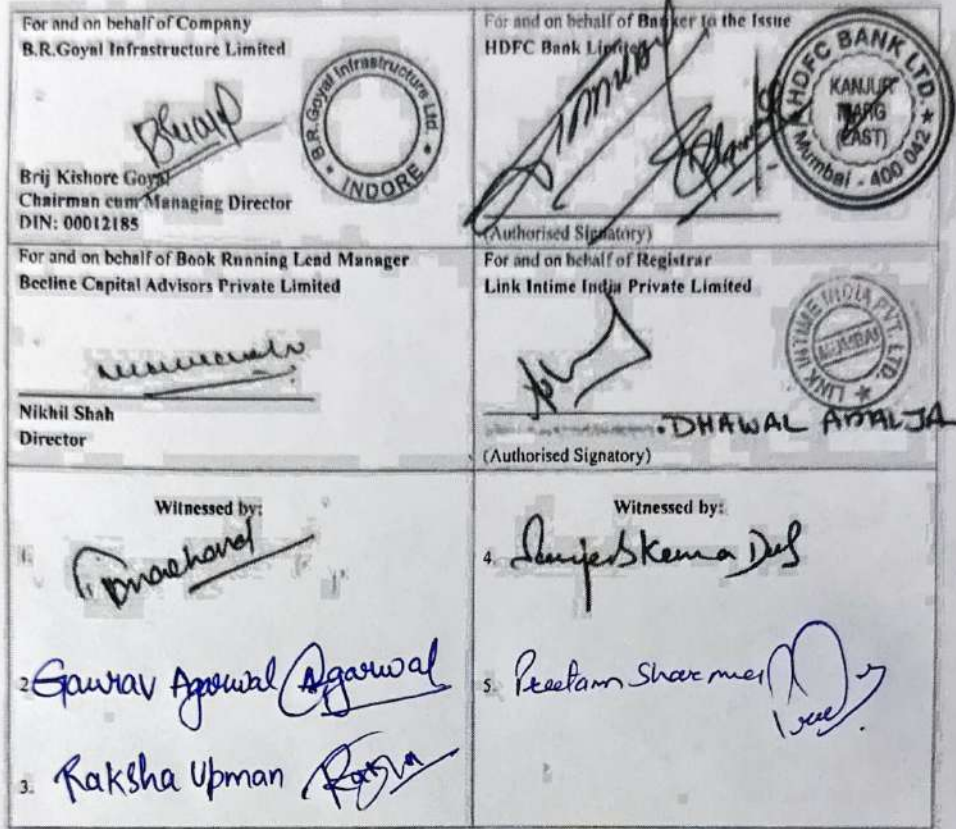 For and on behalf of Company
B.R.Goyal Infrastructure Limited
B.R.Goyal Infrastructure Ltd.
INDORE
Brij Kishore Goyal
Chairman cum Managing Director
DIN: 00012185
For and on behalf of Banker to the Issue
HDFC Bank Limited
HDFC BANK LTD.
KANJUR
MARG
(EAST)
Mumbai - 400 042
(Authorised Signatory)
For and on behalf of Book Running Lead Manager
Beeline Capital Advisors Private Limited
Nikhil Shah
Director
For and on behalf of Registrar
Link Intime India Private Limited
LINK INTIME INDIA PVT. LTD.
MUMBAI
DHAWAL ADALJA
(Authorised Signatory)
Witnessed by:
1.
2. Gaurav Agarwal Agarwal
3. Raksha Upman Raksha
Witnessed by:
4.
5. Preetam Sharma